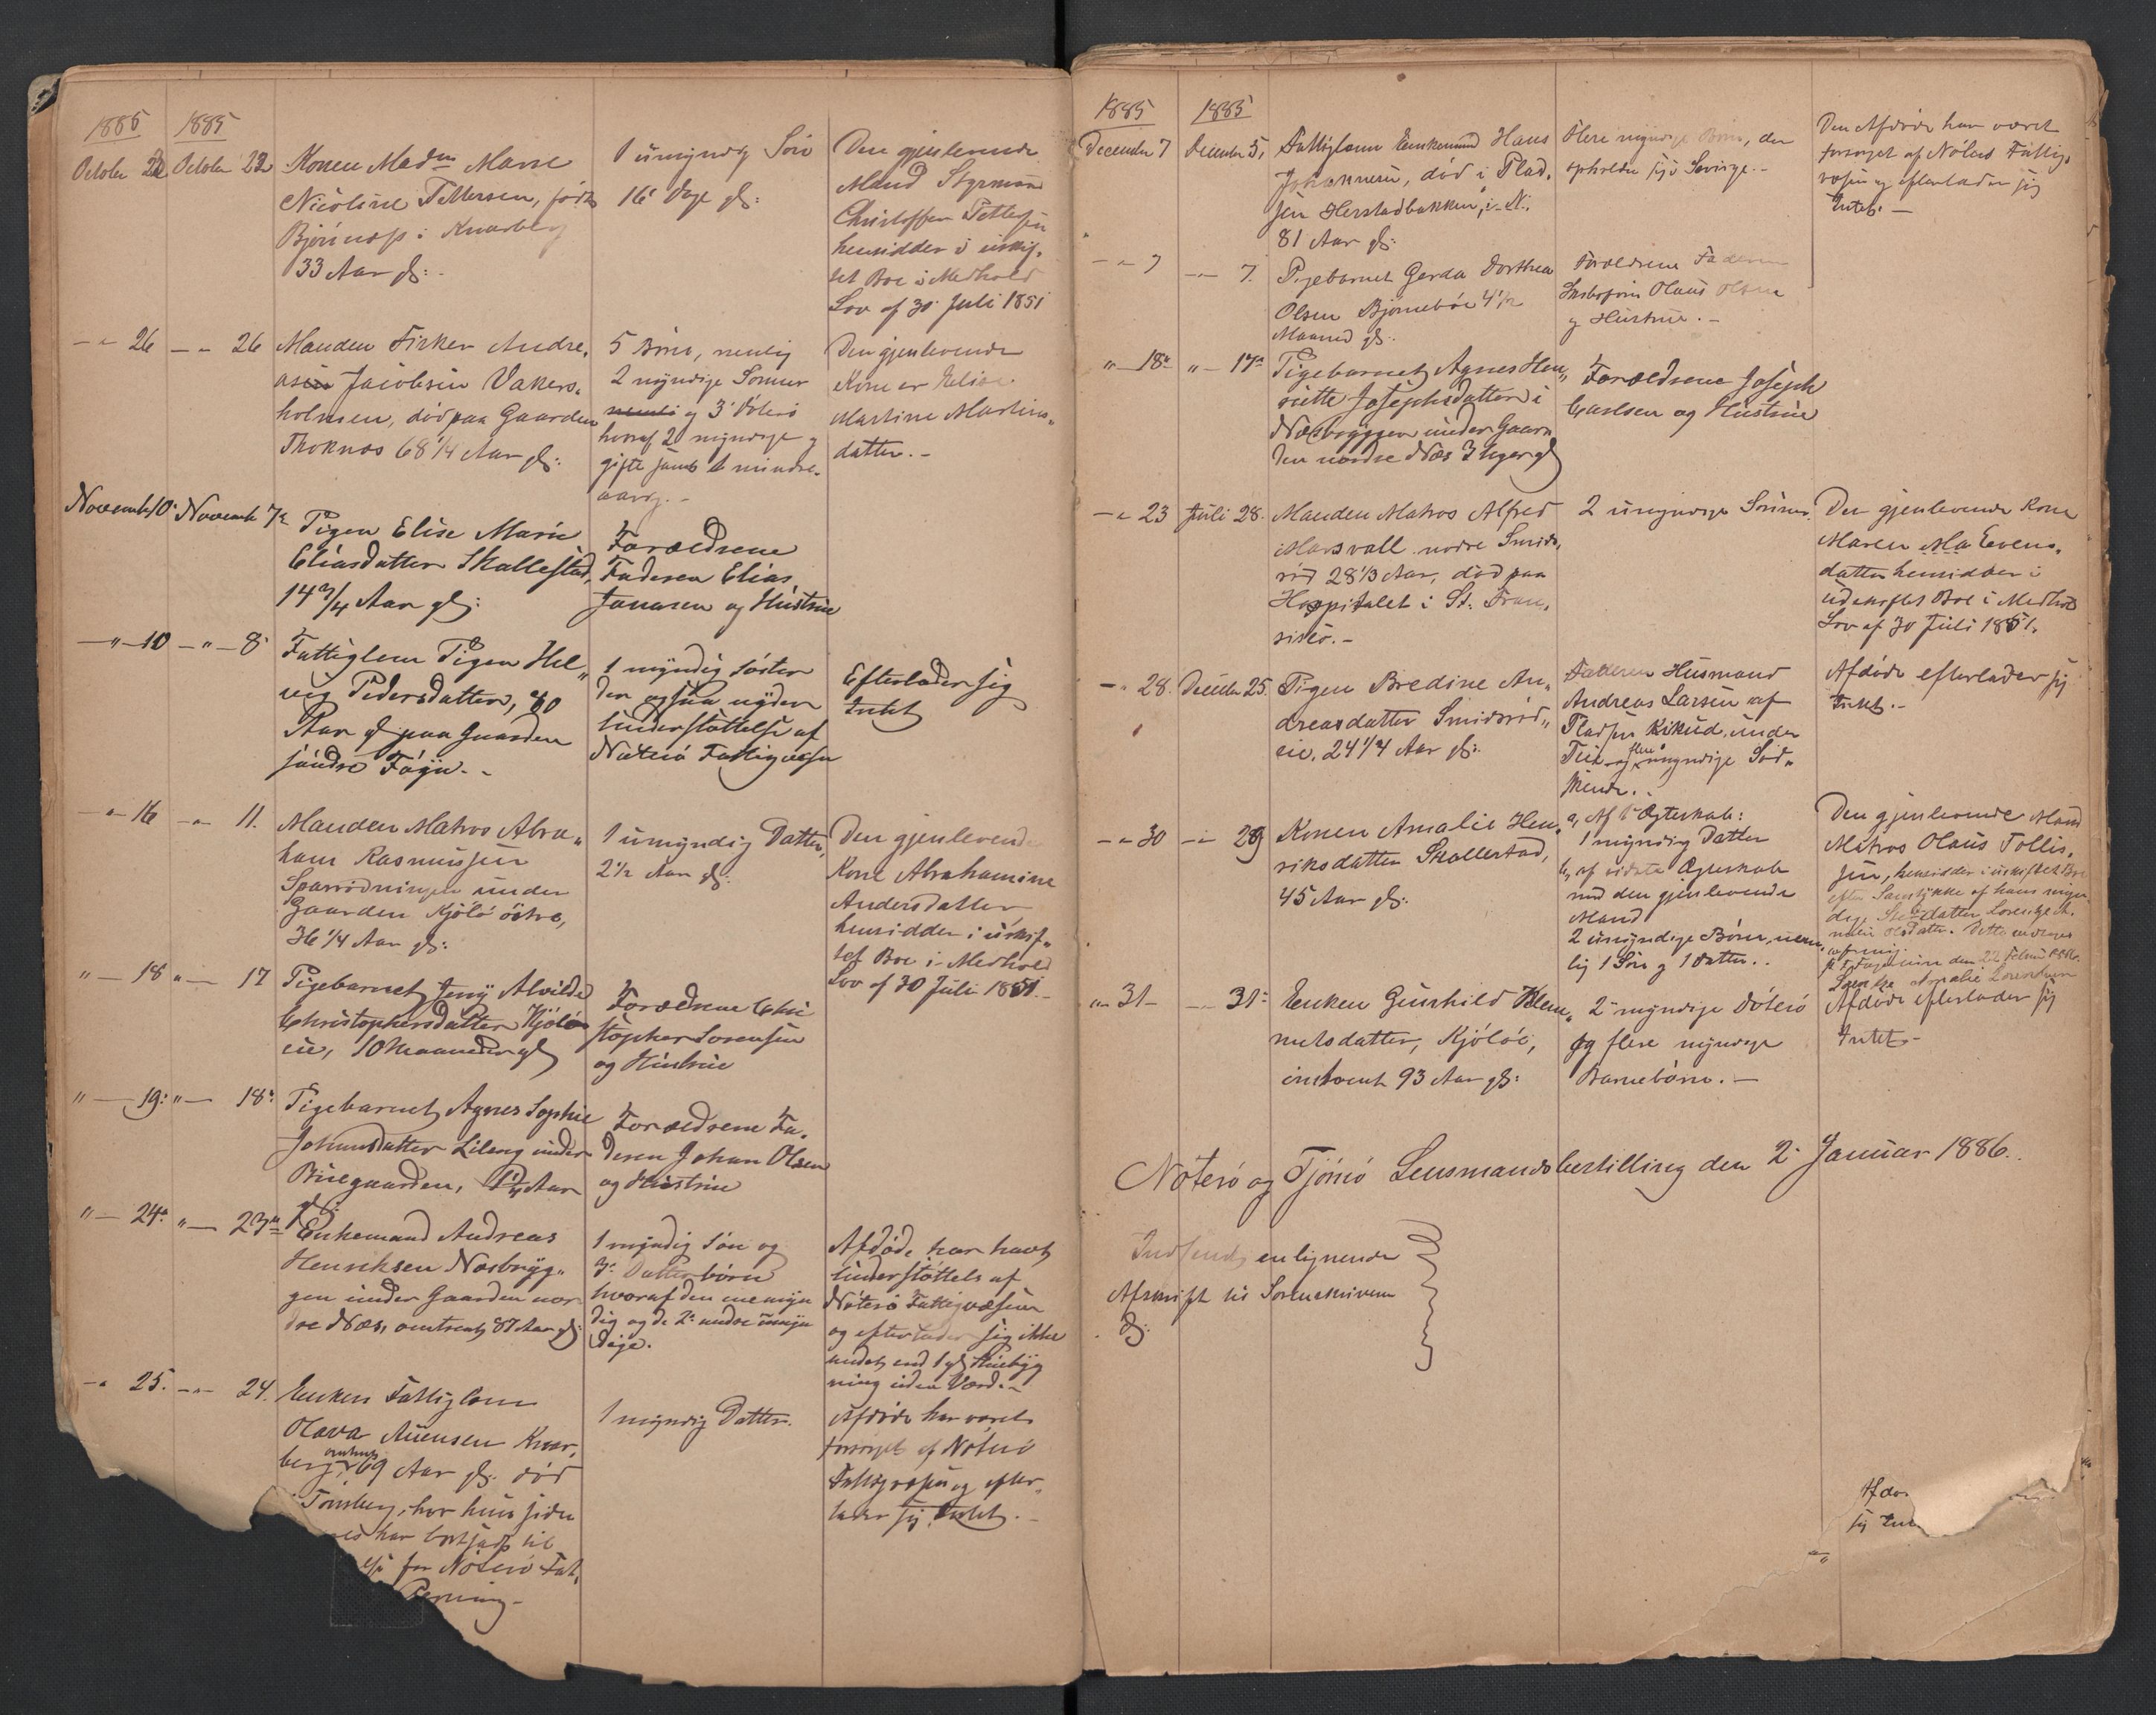 1885 1885
October 22 October 22 Konen Madm Maren
Nicoline Pettersen, født
Bjørnæss i Knarberg
33 Aar gl:
1 umyndig Søn
16 Dage gl:
Den gjenlevende
Mand Styrmand
Christoffer Pettersen
hensidder i uskif-
tet Boe i Medhold
Lov af 30 Juli 1851
- " 26 - " 26 Manden Fisker Andre-
as Jacobsen Vakers-
holmen, død paa Gaarden
Thoknæs 68 1/4 Aar gl:
5 Børn, nemlig
2 myndige Sønner
og 3 Døtre
hvoraf 2 myndige og
gifte samt 1 mindre-
aarig.-
Den gjenlevende
Kone er Elise
Martine Martins-
datter.-
Novemb 10. Novemb 7de Pigen Elise Marie
Eliasdatter Skallestad,
14 3/4 Aar gl:
Forældrene
Faderen Elias
Jonasen og Hustrue
- " - 10 - " - 8. Fattiglem Pigen Hel-
vig Pedersdatter, 70
Aar gl paa Gaarden
søndre Føyn.-
1 myndig Søster
der ogsaa nyder
Understøttelse af
Nøterø Fattigvæsen
Efterlader sig
Intet
- " 16 - " - 11. Manden Matros Abra-
ham Rasmussen
Sparrødningen under
Gaarden Kjøløe østre,
36 1/4 Aar gl:
1 umyndig Datter,
2 1/2 Aar gl:
Den gjenlevende
Kone Abrahamine
Andersdatter
hensidder i uskif-
tet Boe i Medhold
Lov af 30 Juli 1851.-
" - 18 " - 17 Pigebarnet Jeny Alvilde
Christophersdatter Kjølø-
eie, 10 Maaneder gl
Forældrene Chri
stopher Sorensen
og Hustrue
" - 19. " - 18. Pigebarnet Agnes Sophie
Johansdatter Lileng under
Bruegaarden, 1 1/4 Aar
gl:
Forældrene Fa-
deren Johan Olsen
og Hustrue
" - 24. " - 23de Enkemand Andreas
Henriksen Næsbryg-
gen under Gaarden nor
dre Næs, omtrent 87 Aar gl:
1 myndig Søn og
3 Datterbørn
hvoraf den ene myn
dig og de 2 andre umyn
dige.
Afdøde har havt
Understøttelse af
Nøterø Fattigvæsen
og efterlader sig ikke
andet end 1 gl Huusbyg
ning uden Værd.-
- " 25. - " - 24. Enken Fattiglem
Olava Auensen Knar-
berg, omtrent 69 Aar gl: død
i Tønsberg, hvor hun siden
har bortsatt til
for Nøterø Fat-
Regning-
1 myndig Datter.
Afdøde har været
forsørget af Nøterø
Fattigvæsen og efter-
lader sig Intet.-
1885 1885
December 7 December 5. Fattiglem Enkemand Hans
Johannesen, død i Plad-
sen Herstadbakken, i N.
81 Aar gl:
Flere myndige Børn, der
opholder sig i Sverige.-
Den Afdøde har været
forsørget af Nøterø Fattig-
væsen og efterlader sig
Intet.-
- " 7 - " - 7. Pigebarnet Gerda Dorthea
Olsen Bjørnebøe 4 1/2
Maaned gl:
Forældrene Faderen
Olaus Olsen
og Hustrue.-
" - 18de " - 17de Pigebarnet Agnes Hen-
riette Josephsdatter i
Næsbryggen under Gaar-
den nordre Næs 3 Uger gl
Forældrene Joseph
Carlsen og Hustrue
- " 23 Juli 28. Manden Matros Alfred
Marsvall nodre Smids-
rød 28 1/3 Aar, død paa
Hospitalet i St. Fran-
sisco.-
2 umyndige Sønner.
Den gjenlevende Kone
Maren Ma Evens-
datter hensidder i
uskiftet Boe i Medhold
Lov af 30 Juli 1851.
- " 28. December 25. Pigen Bredine An-
dreasdatter Smidsrød-
eie, 24 1/4 Aar gl:
Faderen Huusmand
Andreas Larsen af
Pladsen Kikud under
Teie og flere myndige Sød-
skende.
Afdøde efterlader sig
Intet.-
- " 30 - " 29 Konen Amalie Hen-
riksdatter Skallestad,
45 Aar gl:
a, Af 1ste Ægteskab:
1 myndig Datter
b, af sidste Ægteskab
med den gjenlevende
Mand
2 umyndige Børn, nem-
lig 1 Søn og 1 Datter..
Den gjenlevende Mand
Matros Olaus Tollef-
sen, hensidder i uskiftet Boe
efter Samtykke af hans myn-
dige Steddatter Lorentze A-
malie Olsdatter. Dette
den 22 Februar 1886.
Lorentze Amalie Lorentsen
- " 31 - - " 31. Enken Gunhild Klem-
metsdatter, Kjøløe,
omtrent 93 Aar gl:
2 myndige Døtre
og flere myndige
Barnebørn.-
Afdøde efterlader sig
Intet-
Nøterø og Tjømø Lensmandsbestilling den 2 Januar 1886.
Indsendt enlignende
Afskrift til Sorenskriveren
D:
Afdø
sig Int